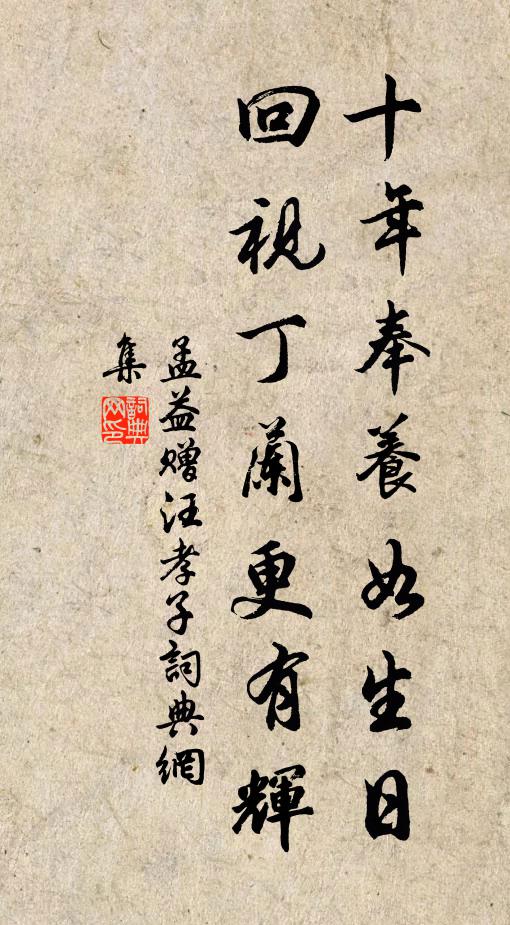 十年奉養如生日
回視丁蘭更有輝
孟益贈汪孝子詞典網
集
詞典網印